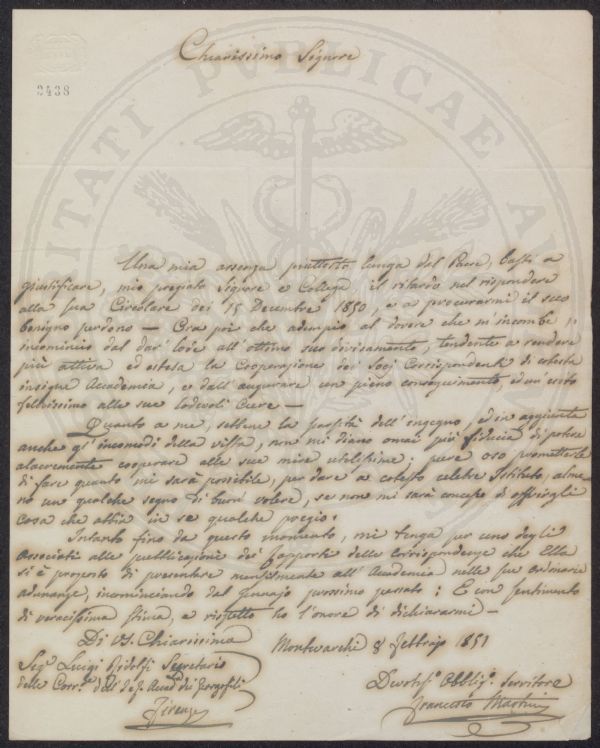 Chiarissimo Signore
2438
UTILITATI PUBLICAE
Una mia assenza piuttosto lunga dal Paese, basti a
giustificare, mio pregiato Signore e Collega il ritardo nel rispondere
alla sua Circolare dei 15 Decembre 1850, e a procurarmi il suo
benigno perdono — Ora poi che adempio al dovere che m'incombe,
incomincio dal dar lode all'ottimo suo divisamento, tendente a rendere
più attiva ed estesa la Cooperazione dei Socj Corrispondenti di codesta
insigne Accademia, e dall'augurare un pieno conseguimento, ed un'esito
felicissimo alle sue lodevoli Cure —
Quanto a me, sebbene la pochità dell'ingegno, ed in aggiunta
anche gl'incomodi della vista, non mi diano omai più fiducia di potere
alacremente cooperare alle sue mire utilissime; pure oso promettere
di fare quanto mi sarà possibile, per dare a codesto celebre Istituto, alme-
no un qualche segno di buon volere, se non mi sarà concesso di offrirgli
cosa che abbia in se qualche pregio.
Intanto fino da questo momento, mi tenga per uno degli
Associati alla pubblicazione dei Rapporti delle Corrispondenze che Ella
si è proposto di presentare mensilmente all'Accademia nelle sue ordinarie
adunanze, incominciando dal Gennajo prossimo passato: E con sentimento
di veracissima stima, e rispetto ho l'onore di dichiararmi —
Di VS. Chiarissima
Montevarchi 8 Febbrajo 1851
Sigr Luigi Ridolfi Segretario
delle Corr. dell' Accad. dei Georgofili
Firenze
Devotis. Obblig. Servitore
Francesco Martini